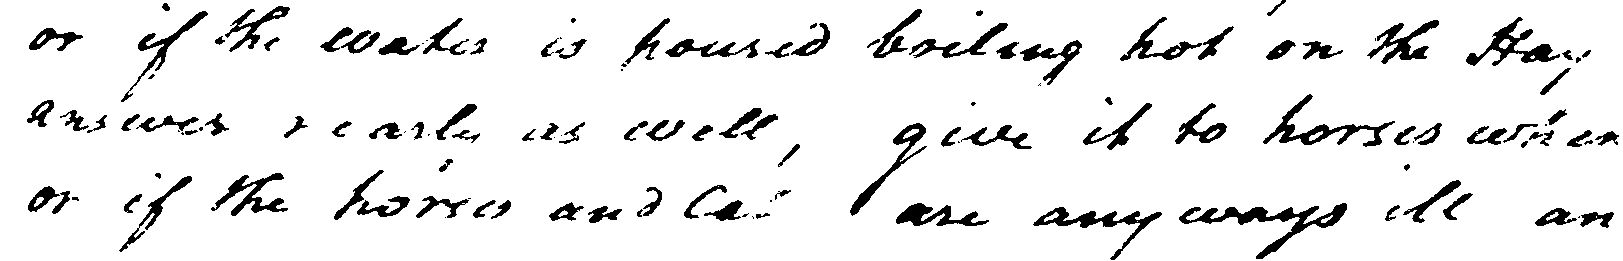 or if the water is poured boiling hot on the Hay
answer nearly as well, give it to horses when
or if the horses and are any ways ill an